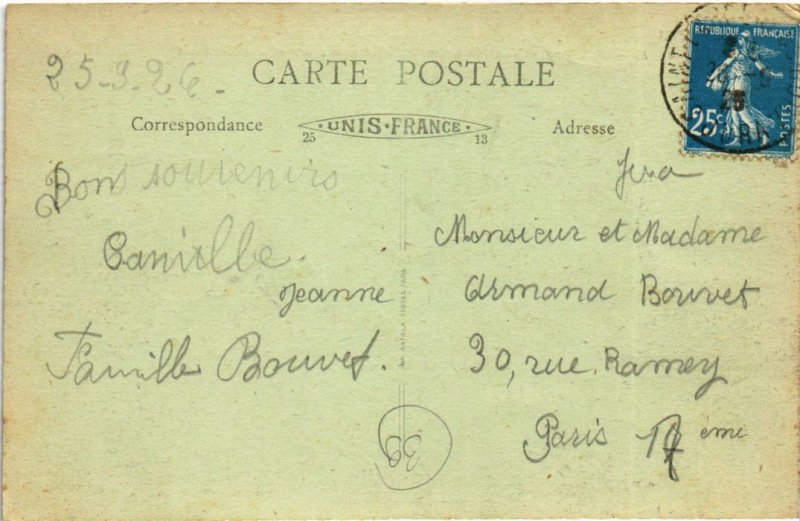 25-9-26-
CARTE POSTALE
Correspondance
UNIS-FRANCE
25
13
Adresse
REPUBLIQUE FRANÇAISE
25c
POSTES
Bons souvenirs
Camille.
Jeanne
Famille Bouvet.
Monsieur et Madame
Armand Bouvet
30, rue Ramey
Paris eme